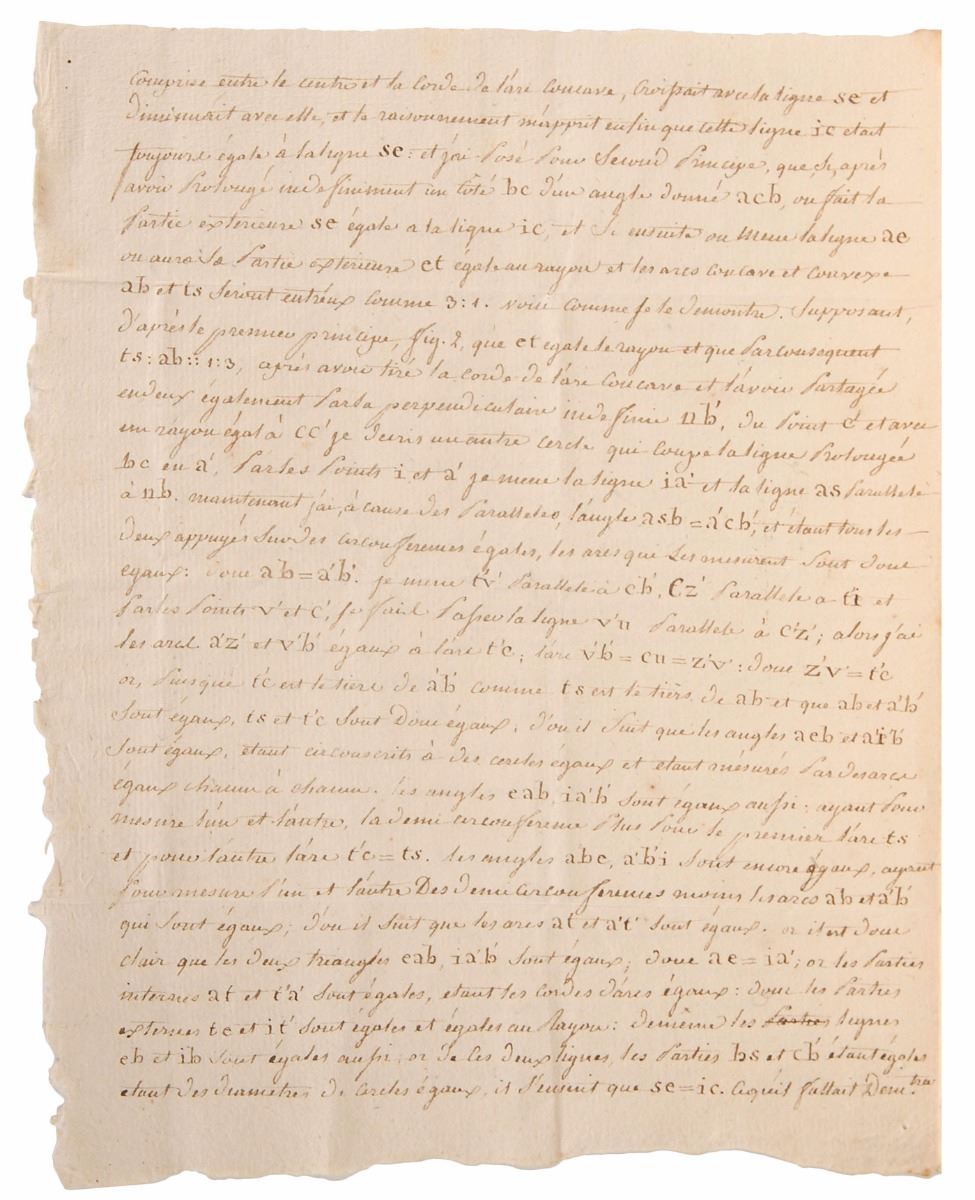 comprise entre le centre et la corde de l'arc concave, croissait avec la ligne se et
diminuait avec elle, et le raisonnement m'apprit enfin que cette ligne ic etait
toujours égale à la ligne se: et j'ai posé pour second Principe, que si, après
avoir Prolongé indefiniment un coté bc d'un angle donné acb, on fait la
Partie exterieure se égale a la ligne ic, et si ensuite on mene la ligne ae
on aura sa Partie exterieure et égale au rayon et les arcs concave et convexe
ab et ts seront entr'eux comme 3:1. voici comme je le demontre. Supposant,
d'après le premier principe, fig. 2, que et egale le rayon et que Par consequent
ts: ab:: 1:3, après avoir tiré la corde de l'arc concave et l'avoir Partagée
en deux également Par la perpendiculaire indefinie nb', du Point c' et avec
un rayon égal à cc' je decris un autre cercle qui coupe la ligne Prolongée
bc en a'. Par les Points i et a' je mene la ligne ia' et la ligne as Parallele
à nb'. maintenant j'ai, à cause des Paralleles, l'angle asb = a'c'b', et étant tous les
deux appuyés sur des circonferences égales, les arcs qui les mesurent sont donc
egaux: donc ab = a'b'. je mene t'v' Parallele à cb', c'z' Parallele a t'i et
Par les Points v' et c', je fais Passer la ligne v'u Parallele à c'z'; alors j'ai
les arcs a'z' et v'b' égaux à l'arc t'c; l'arc v'b' = cu = z'v': donc z'v' = t'c
or, Puisque t'c est le tiers de a'b' comme ts est le tiers de ab et que ab et a'b'
sont égaux, ts et t'c sont Donc égaux; d'ou il suit que les angles aeb et a'ib'
sont égaux, etant circonscrits à des cercles égaux et etant mésurés Par des arcs
égaux chacun à chacun. les angles eab, ia'b' sont égaux aussi: ayant Pour
mesure l'un et l'autre, la demi circonference Plus Pour le premier l'arc ts
et pour l'autre l'arc t'c = ts. les angles abe, a'b'i sont encore égaux, ayant
Pour mesure l'un et l'autre Des demi circonferences moins les arcs ab et a'b'
qui sont égaux; d'ou il suit que les arcs at et a't' sont égaux. or il est donc
clair que les deux triangles eab, ia'b' sont égaux; donc ae = ia'; or les Parties
internes at et t'a' sont égales, etant les cordes d'arcs égaux: donc les Parties
externes te et it' sont égales et égales au Rayon: de même les Parties lignes
eb et ib' sont égales aussi; or de ces deux lignes, les Parties bs et cb' étant égales
etant des diametres de cercles égaux, il s'ensuit que se = ic. Ce qu'il fallait Dém.trer